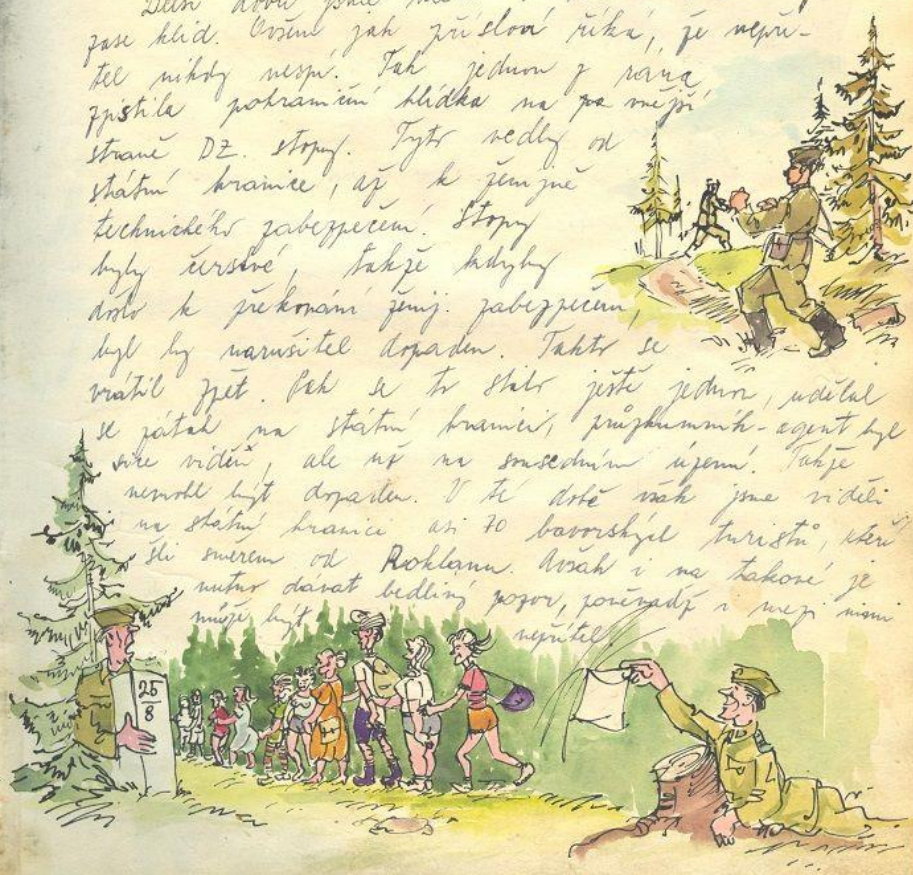 Delší dobu jsme
zase klid. Ovšem jak přísloví říká, že nepří-
tel nikdy nespí. Tak jednou z rána
zjistila pohraniční hlídka na vnější
straně DZ. stopy. Tyto vedly od
státní hranice, až k ženijně
technického zabezpečení. Stopy
byly čerstvé, takže kdyby
došlo k překonání ženij. zabezpečení,
byl by narušitel dopaden. Takto se
vrátil zpět. Pak se to stalo ještě jednou, udělal
se zátah na státní hranici, průzkumník-agent byl
sice viděn, ale už na sousedním území. Takže
nemohl být dopaden. V té době však jsme viděli
na státní hranici asi 70 bavorských turistů, kteří
šli smerem od Roklanu. Avšak i na takové je
nutno dávat bedlivý pozor, poněvadž i mezi nimi
může být nepřítel
25
8